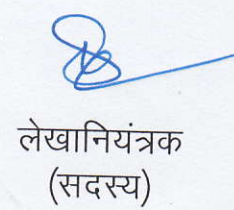 लेखानियंत्रक
(सदस्य)